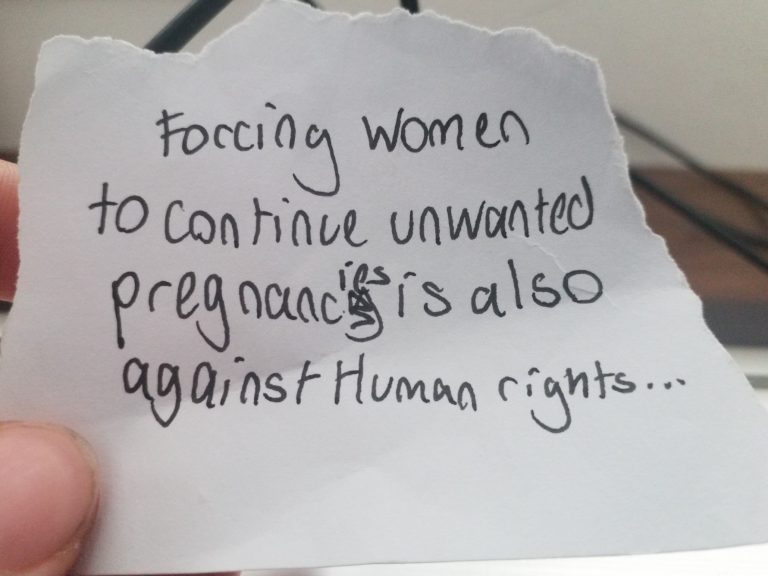 Forcing women
to continue unwanted
pregnancies is also
against Human rights...